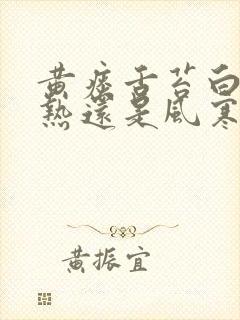 黄痰舌苔白
熱還是風寒
黄振宜